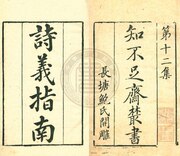 第十二集
知不足齋叢書
長塘鮑氏開雕
詩義指南